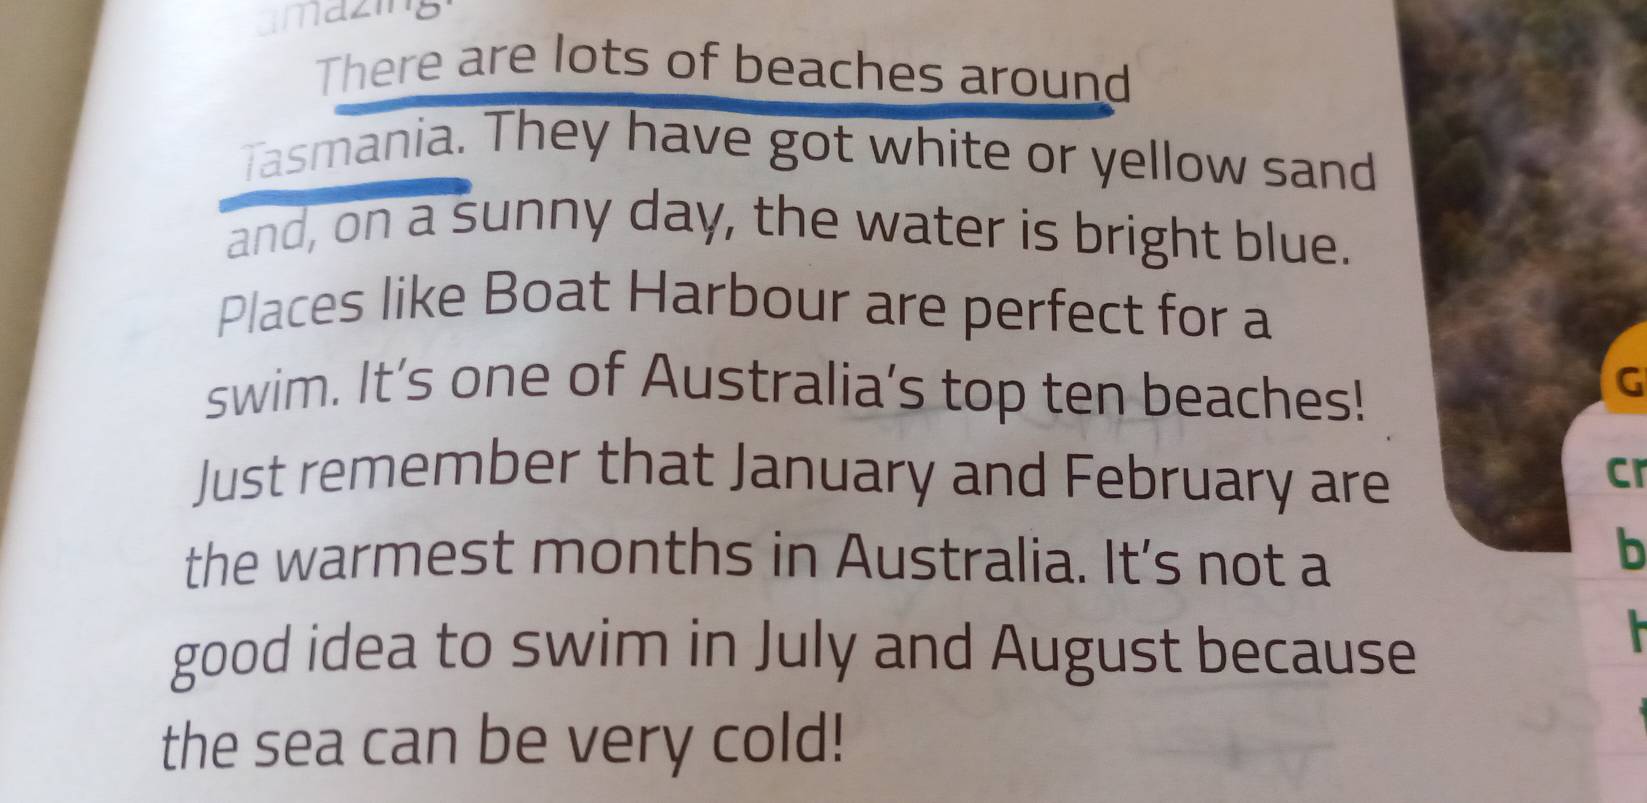 amazing.
There are lots of beaches around
Tasmania. They have got white or yellow sand
and, on a sunny day, the water is bright blue.
Places like Boat Harbour are perfect for a
swim. It's one of Australia's top ten beaches!
Just remember that January and February are
the warmest months in Australia. It's not a
good idea to swim in July and August because
the sea can be very cold!